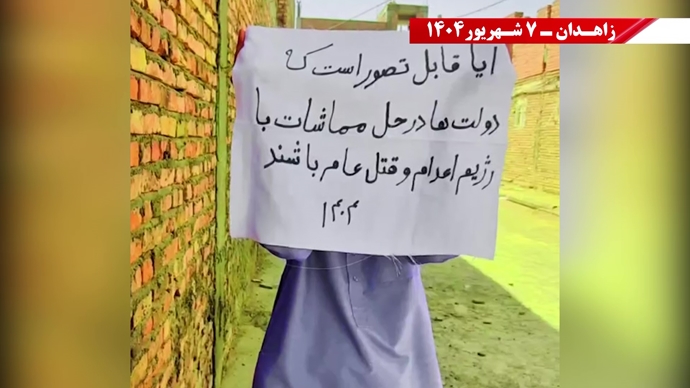 زاهدان - ۷ شهریور ۱۴۰۴
ایا قابل تصور است که
دولت ها در حل مماشات با
رژیم اعدام و قتل عام باشند
م.م.ا